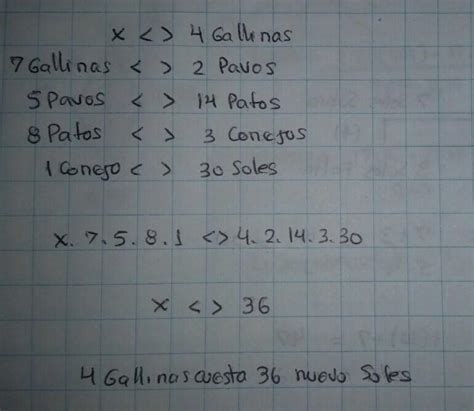 x < > 4 Gallinas
7 Gallinas < > 2 Pavos
5 Pavos < > 14 Patos
8 Patos < > 3 Conejos
1 Conejo < > 30 Soles
x. 7. 5. 8. 1 <> 4. 2. 14. 3. 30
x < > 36
4 Gallinas cuesta 36 nuevo Soles